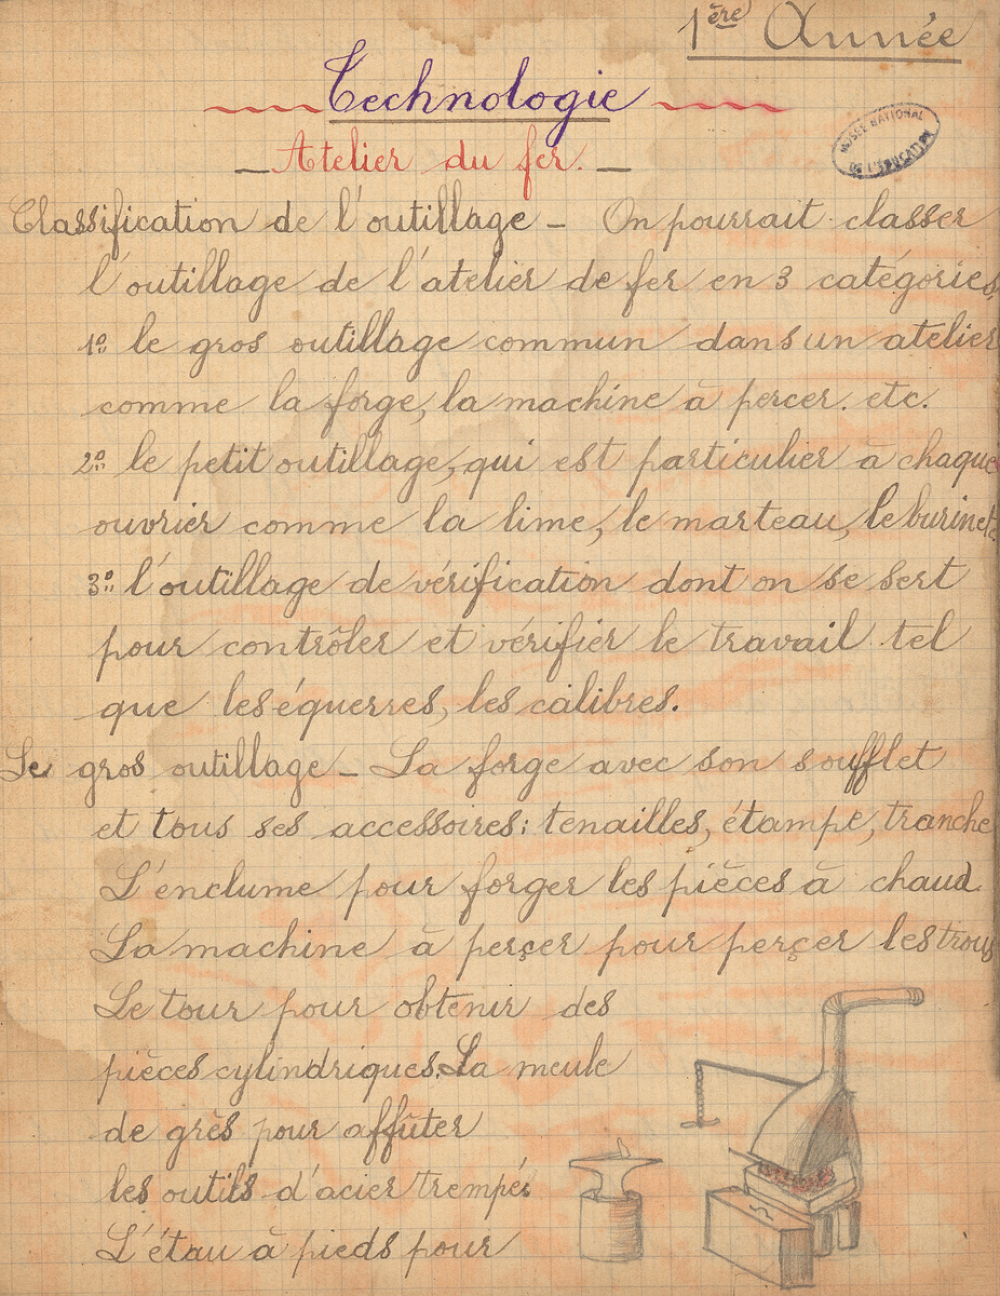 1ère Année
Technologie
Atelier du fer.
MUSÉE NATIONAL
DE L'ÉDUCATION
Classification de l'outillage - On pourrait classer
l'outillage de l'atelier de fer en 3 catégories.
1º: le gros outillage commun dans un atelier
comme la forge, la machine à percer. etc.
2º: le petit outillage, qui est particulier à chaque
ouvrier comme la lime, le marteau, le burin etc.
3º: l'outillage de vérification dont on se sert
pour contrôler et vérifier le travail tel
que les équerres, les calibres.
Le gros outillage - La forge avec son soufflet
et tous ses accessoires: tenailles, étampe, tranche
L'enclume pour forger les pièces à chaud.
La machine à perçer pour perçer les trous
Le tour pour obtenir des
pièces cylindriques. La meule
de grès pour affûter
les outils d'acier trempés
L'étau à pieds pour